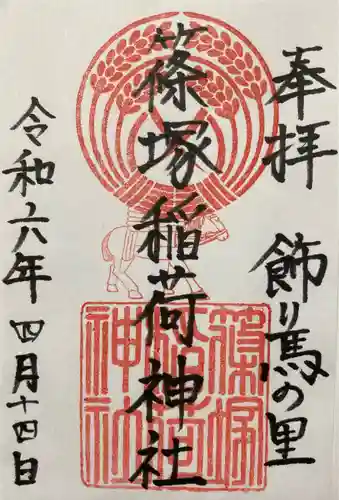 奉拝
飾り馬の里
篠塚稲荷神社
令和六年四月十四日
篠塚
稲荷
神社